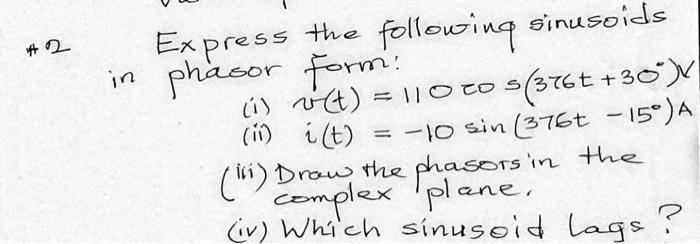 #2 Express the following sinusoids
in phasor form:
(i) v(t) = 110 cos(376t + 30°)V
(ii) i(t) = -10 sin(376t - 15°)A
(iii) Draw the phasors in the
complex plane.
(iv) Which sinusoid lags?